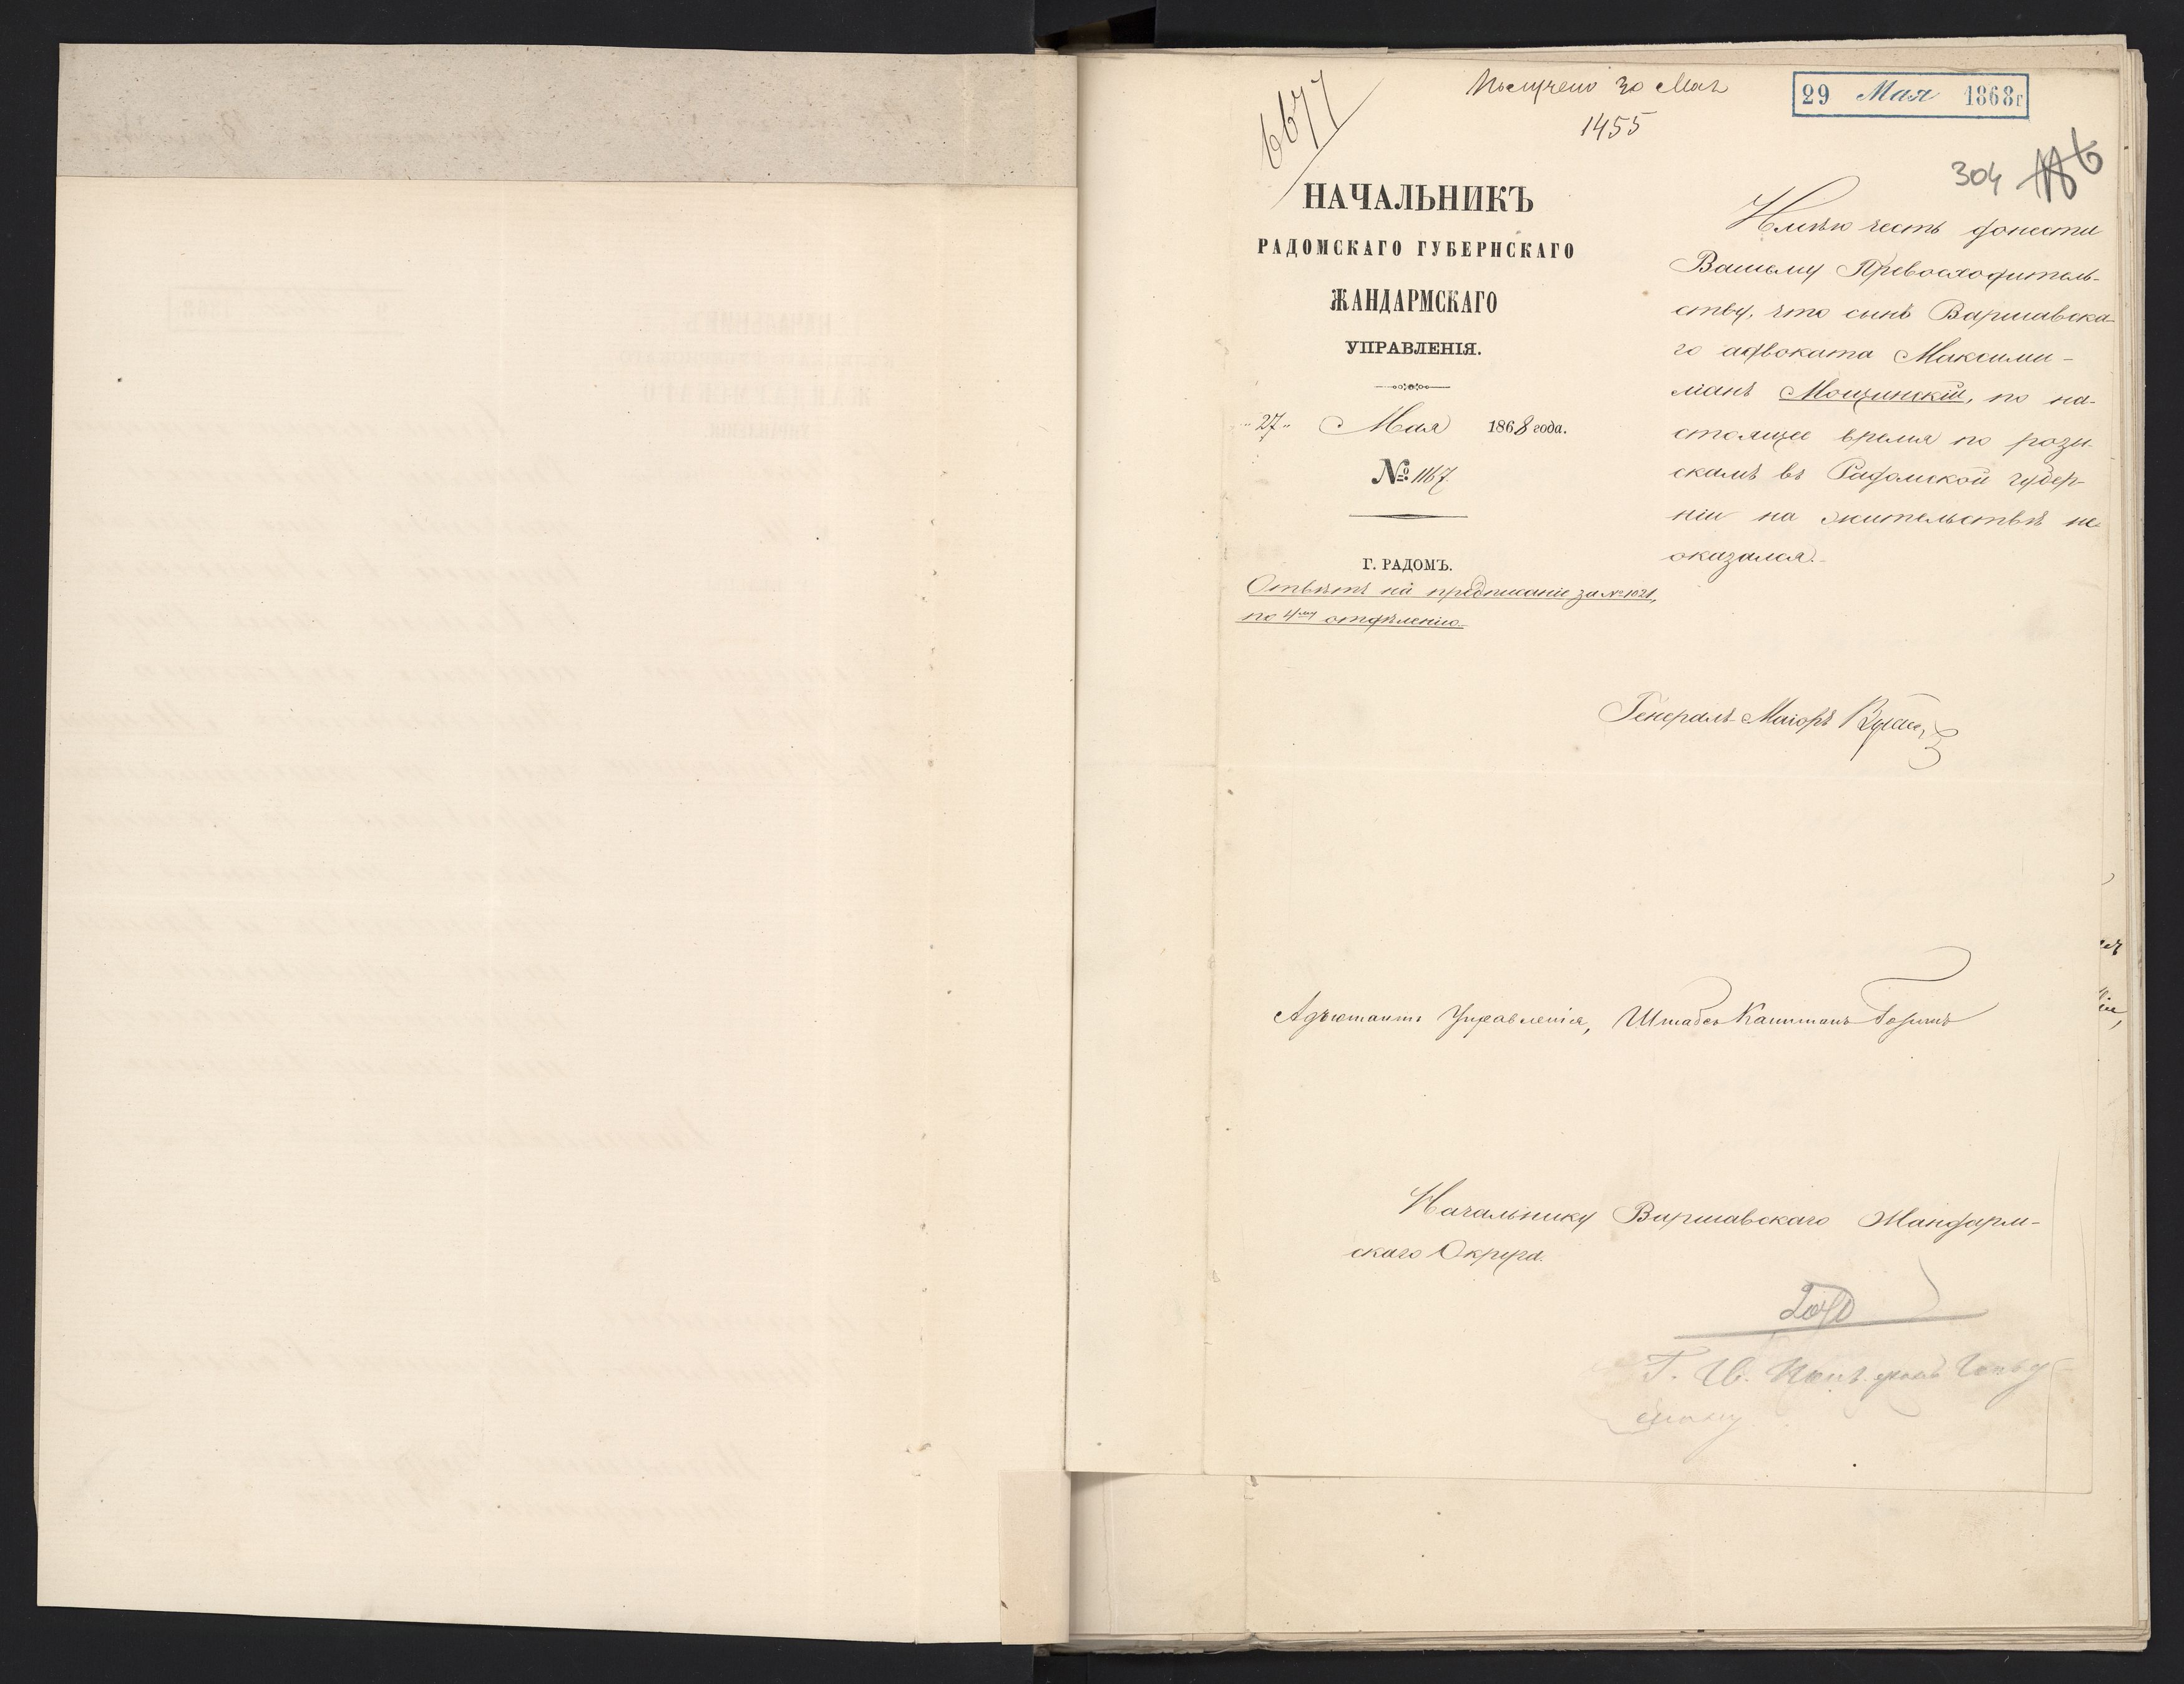 6677
Получено 30 Мая
1455
29 Мая 1868г
304
НАЧАЛЬНИКЪ
РАДОМСКАГО ГУБЕРНСКАГО
ЖАНДАРМСКАГО
УПРАВЛЕНІЯ.
„27„ Мая 1868 года.
№ 1167.
Г. РАДОМЪ.
Отвѣтъ на предписаніе за № 1021,
по 4му отдѣленію.
Имѣю честь донести
Вашему Превосходитель-
ству, что сынъ Варшавска-
го адвоката Максими-
ліанъ Мощинскій, по на-
стоящее время по розы-
скамъ въ Радомской губер-
ніи на жительствѣ не
оказался.
Генералъ-Маіоръ
Адъютантъ Управленія, Штабсъ Капитанъ
Начальнику Варшавскаго Жандарм-
скаго Округа.